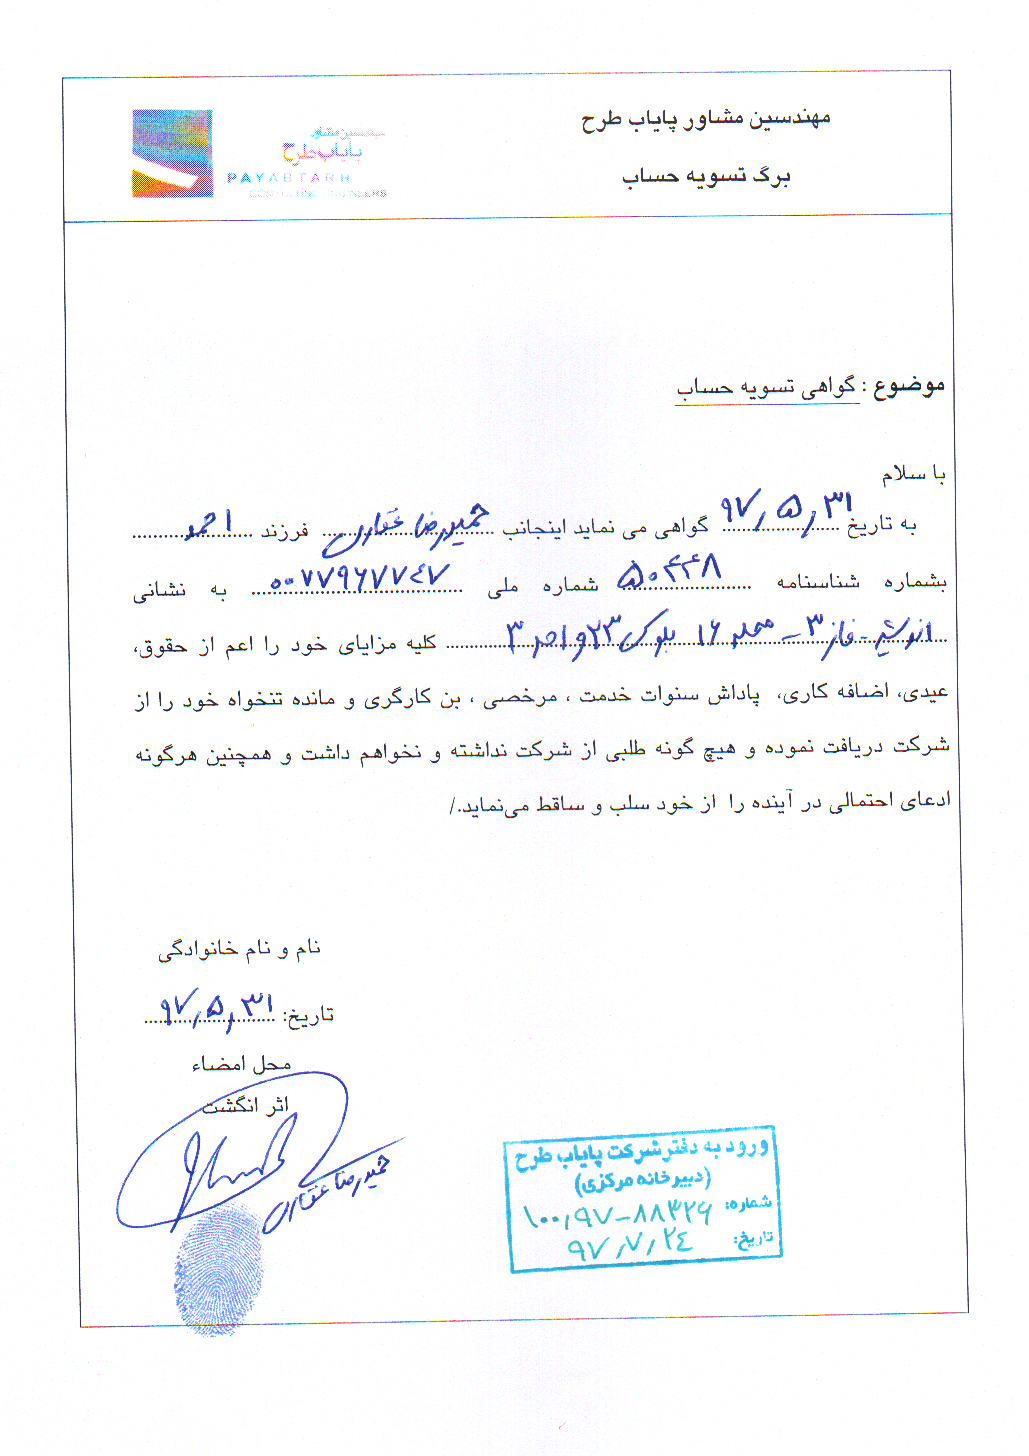 مهندسین مشاور پایاب طرح
برگ تسویه حساب
مهندسین مشاور
پایاب طرح
PAYABTARH
CONSULTING ENGINEERS
موضوع : گواهی تسویه حساب
با سلام
به تاریخ ۹۷,۵,۳۱ گواهی می نماید اینجانب حمیدرضا عقاری فرزند احمد
بشماره شناسنامه ۵۰۴۴۸ شماره ملی ۰۰۷۷۹۶۷۷۴۷ به نشانی
فاز ۳ - محله ۱۶ بلوک ۲۳ واحد ۳ کلیه مزایای خود را اعم از حقوق،
عیدی، اضافه کاری، پاداش سنوات خدمت ، مرخصی ، بن کارگری و مانده تنخواه خود را از
شرکت دریافت نموده و هیچ گونه طلبی از شرکت نداشته و نخواهم داشت و همچنین هرگونه
ادعای احتمالی در آینده را از خود سلب و ساقط می‌نماید./
نام و نام خانوادگی
تاریخ: ۹۷,۵,۳۱
محل امضاء
اثر انگشت
حمیدرضا عقاری
ورود به دفتر شرکت پایاب طرح
(دبیرخانه مرکزی)
شماره: ۱۰۰,۹۷-۸۸۳۲۶
تاریخ: ۹۷,۷,۲۴